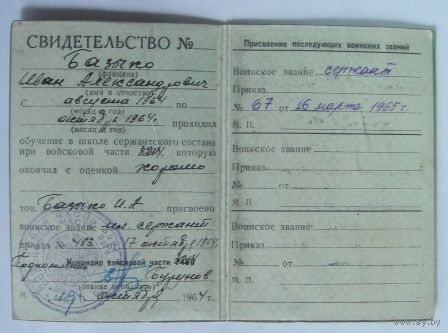 СВИДЕТЕЛЬСТВО №
Базыко
(фамилия)
Иван Александрович
(имя и отчество)
С августа 1964 по
(месяц и год)
октябрь 1964г. проходил
(месяц и год)
обучение в школе сержантского состава
при войсковой части которую
окончил с оценкой хорошо
тов. Базыко И.А присвоено
воинское звание мл. сержант
приказ № от 17 октября 1964
Командир войсковой части
Подполковник Бурунов
М. П. октября 1964 г.
Присвоение последующих воинских званий
Воинское звание сержант
Приказ
№ 67 от 26 марта 1965г
М. П.
Воинское звание
Приказ
№ от
М. П.
Воинское звание
Приказ
№ от
М. П.
www.ay.by